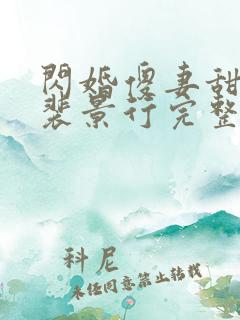 閃婚傻妻甜
裴景行完整
科尼
未经同意禁止转载